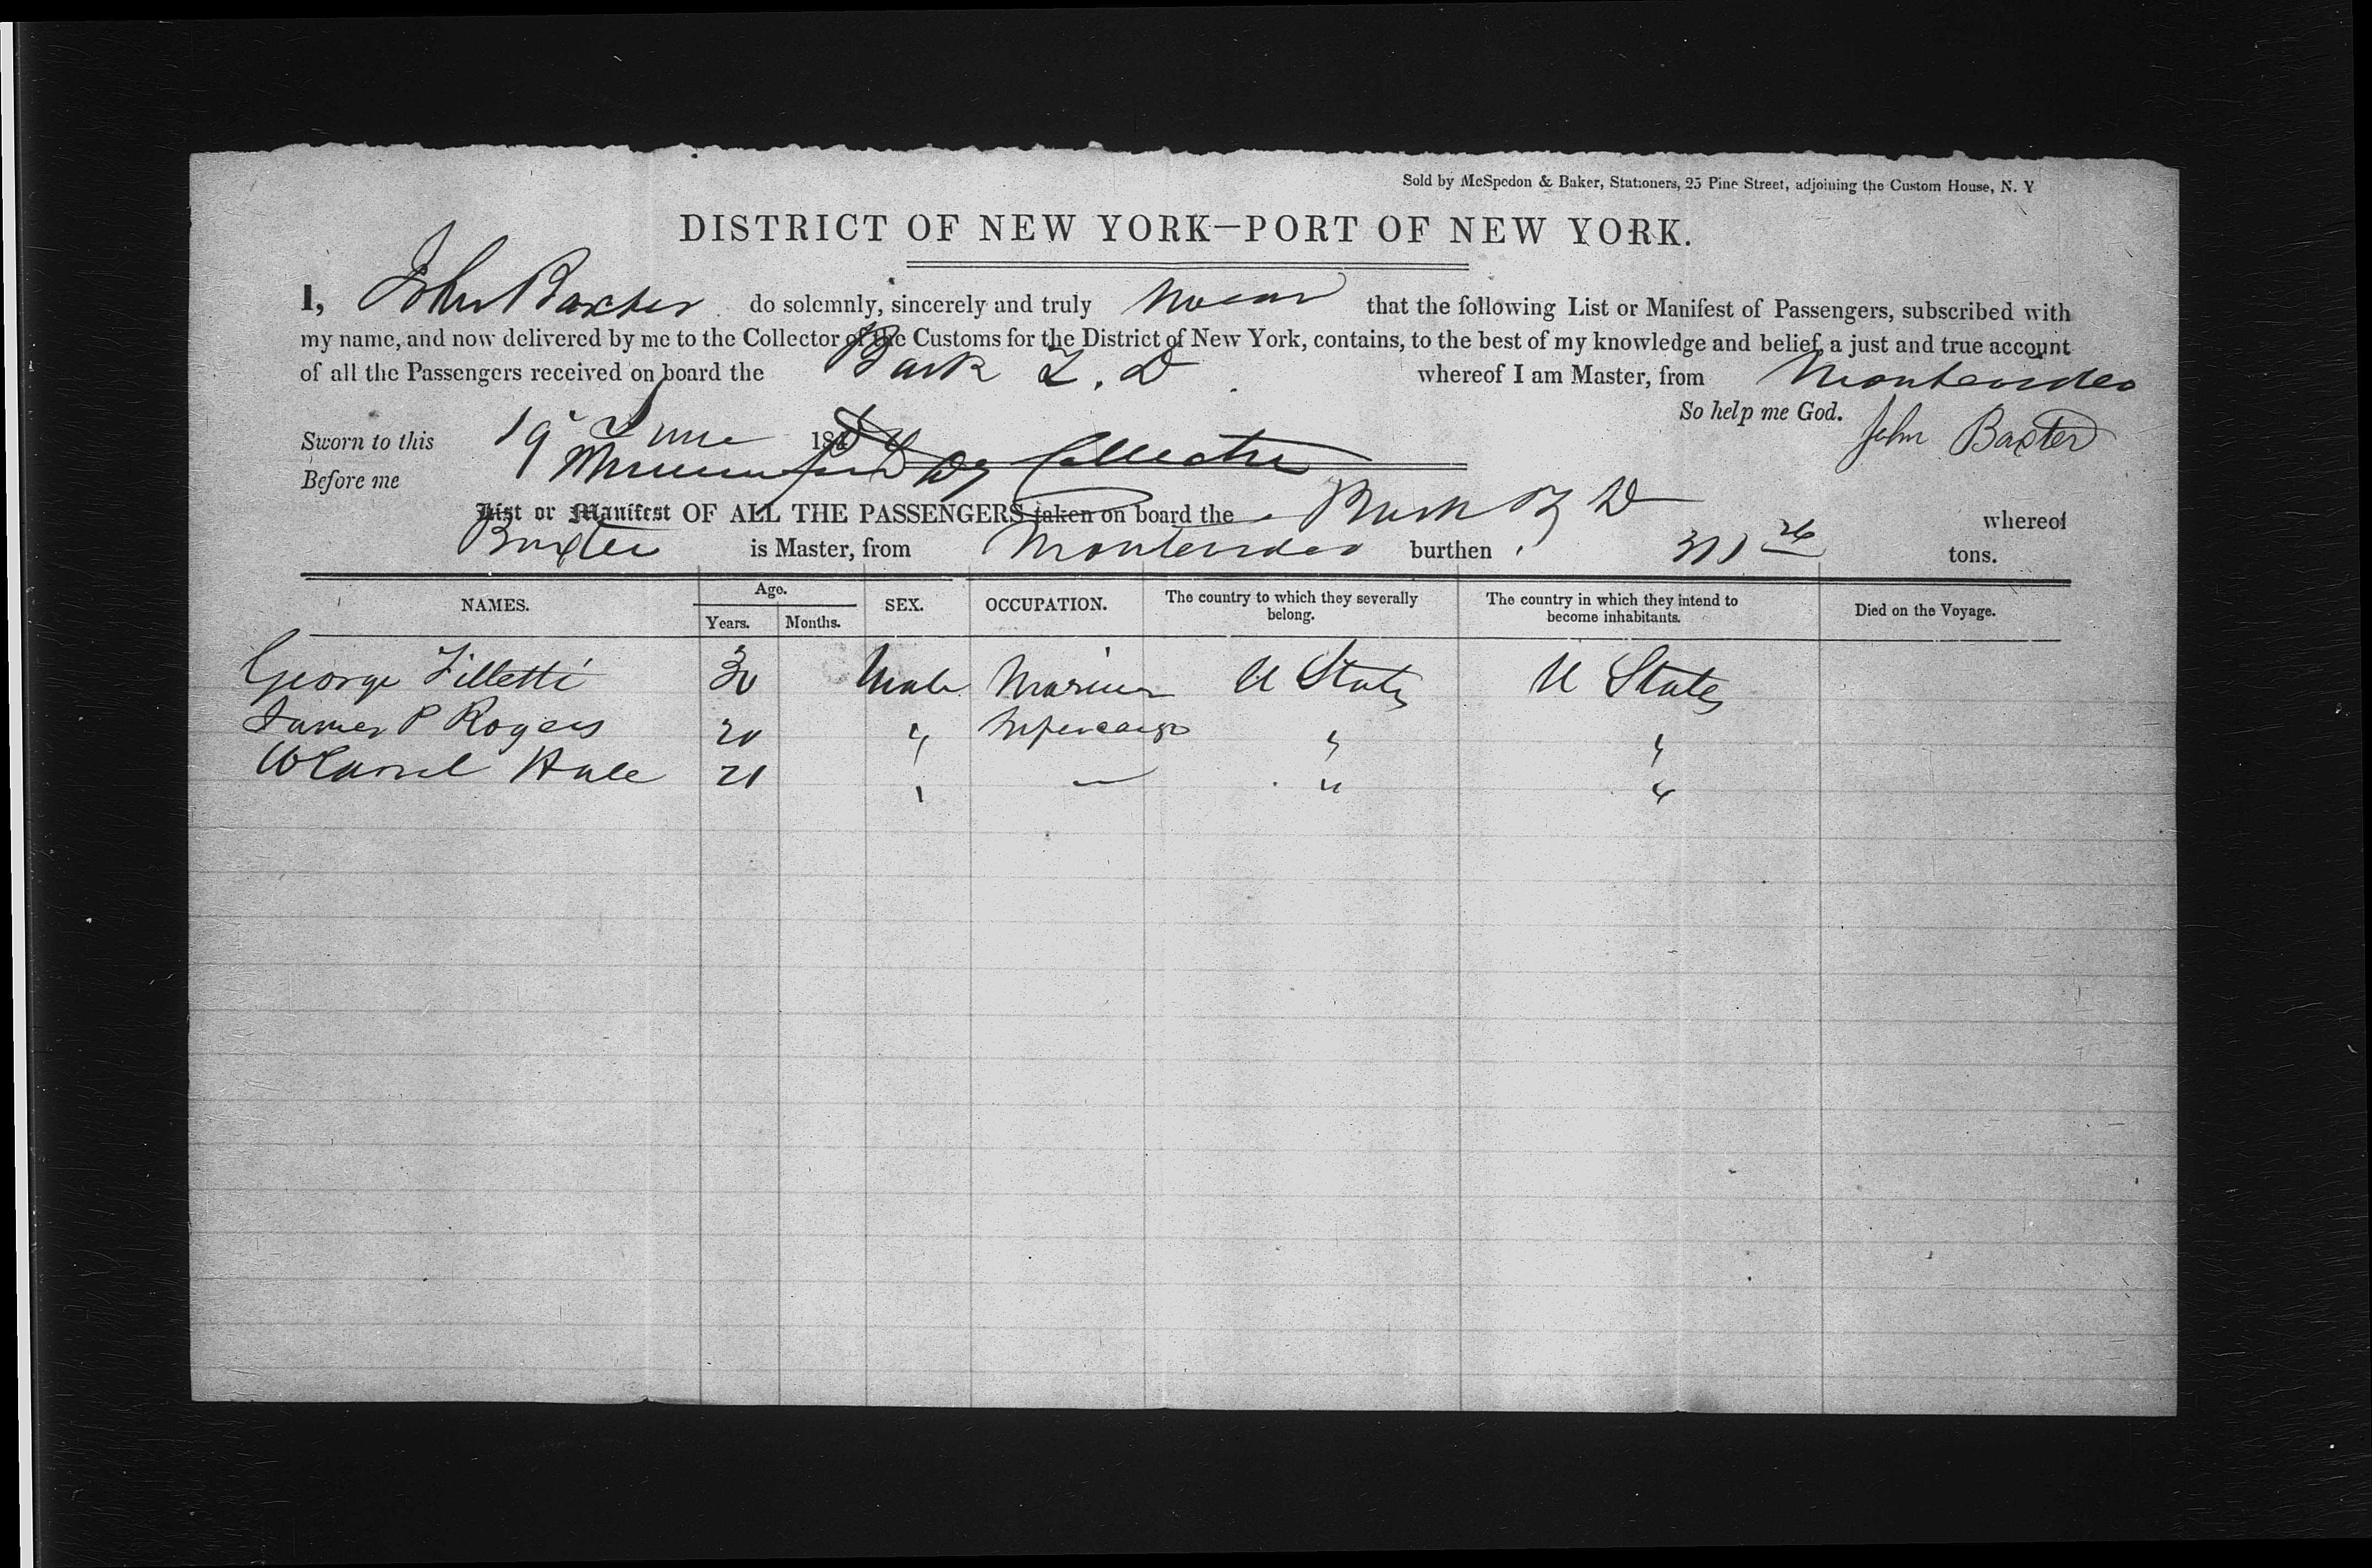 Sold by McSpedon & Baker, Stationers, 25 Pine Street, adjoining the Custom House, N. Y
DISTRICT OF NEW YORK—PORT OF NEW YORK.
I, John Baxter do solemnly, sincerely and truly swear that the following List or Manifest of Passengers, subscribed with
my name, and now delivered by me to the Collector of the Customs for the District of New York, contains, to the best of my knowledge and belief, a just and true account
of all the Passengers received on board the Bark Z. D whereof I am Master, from Montevideo
So help me God.
Sworn to this 19 June 184 John Baxter
Before me Dy Collector
List or Manifest OF ALL THE PASSENGERS taken on board the Bark Z D whereof
Baxter is Master, from Montevideo burthen tons.
NAMES. Age. Years. Months. SEX. OCCUPATION. The country to which they severally belong. The country in which they intend to become inhabitants. Died on the Voyage.
George 30 Male Mariner U States U States
James P Rogers 20 " Supercargo " "
Hale 21 " — " "